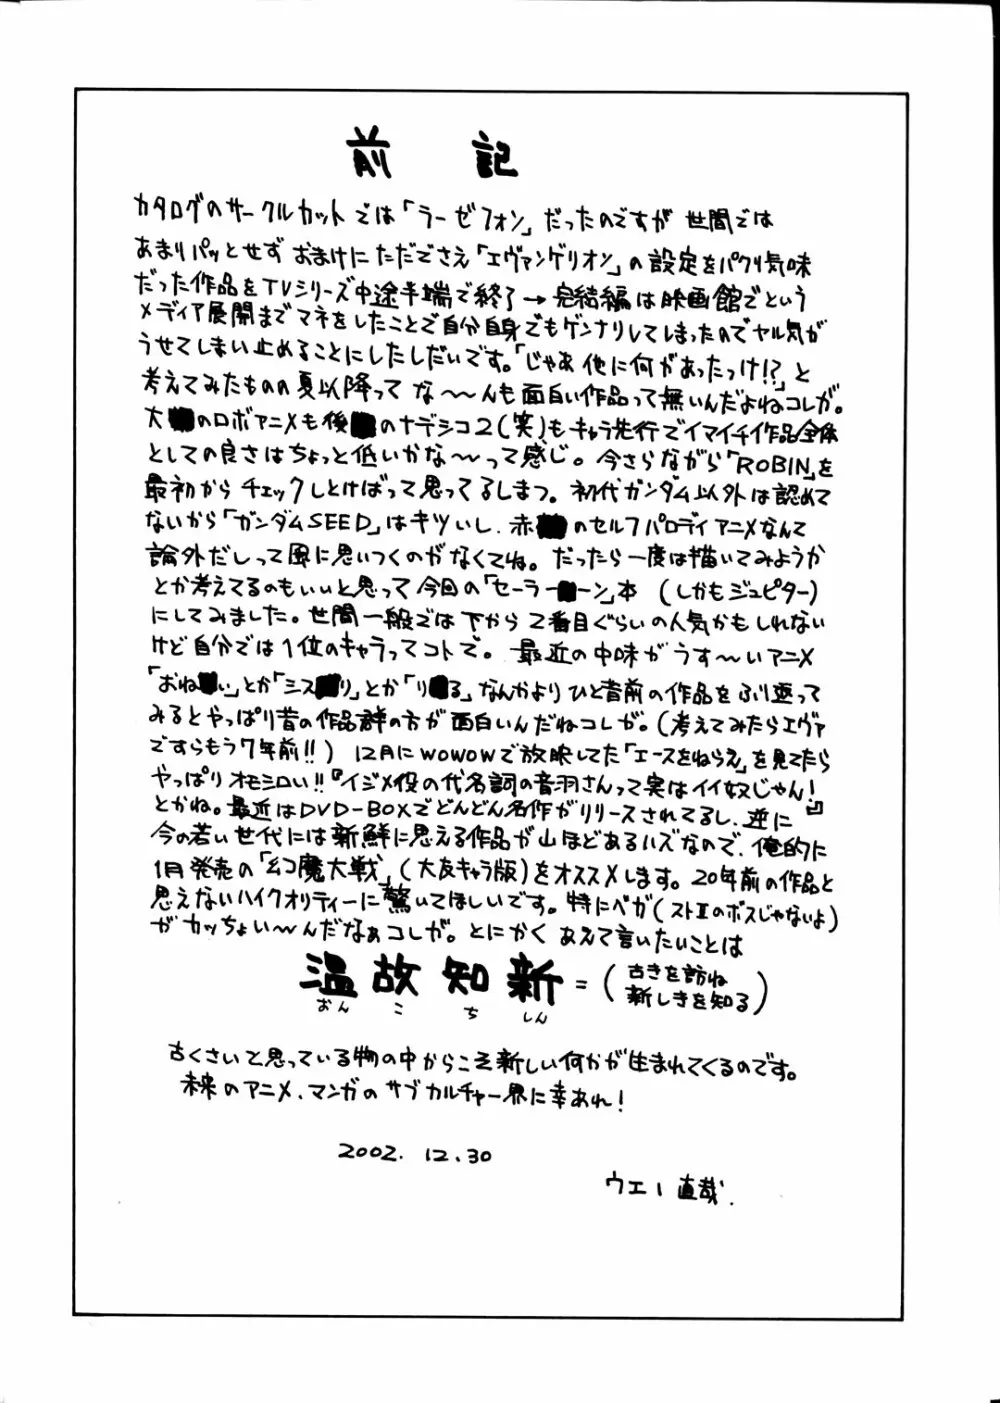 前記
カタログのサークルカットでは「ラーゼフォン」だったのですが 世間では
あまりパッとせず おまけにただでさえ「エヴァンゲリオン」の設定をパクり気味
だった作品をTVシリーズ中途半端で終了→完結編は映画館でという
メディア展開までマネをしたことで自分自身でもゲンナリしてしまったのでヤル気が
うせてしまい止めることにしたしだいです。「じゃあ他に何があったっけ!?」と
考えてみたものの夏以降って な〜〜んも面白い作品って無いんだよねコレが。
大のロボアニメも後のナデシコ2(笑)もキャラ先行でイマイチ作品全体
としての良さはちょっと低いかな〜〜って感じ。今さらながら「ROBIN」を
最初からチェックしとけばって思ってるしまつ。初代ガンダム以外は認めて
ないから「ガンダムSEED」はキツいし、赤のセルフパロディアニメなんて
論外だしって風に思いつくのがなくてね。だったら一度は描いてみようか
とか考えてるのもいいと思って今回の「セーラーーン」本 (しかもジュピター)
にしてみました。世間一般では下から2番目ぐらいの人気かもしれない
けど自分では1位のキャラってコトで。最近の中味がうす〜いアニメ
「おねい」とか「シスリ」とか「りる」なんかよりひと昔前の作品をふり返って
みるとやっぱり昔の作品群の方が面白いんだねコレが。(考えてみたらエヴァ
ですらもう7年前!!) 12月にWOWOWで放映してた「エースをねらえ」を見てたら
やっぱりオモシロい!!『イジメ役の代名詞の音羽さんって実はイイ奴じゃん!』
とかね。最近はDVD-BOXでどんどん名作がリリースされてるし、逆に
今の若い世代には新鮮に思える作品が山ほどあるハズなので、俺的に
1月発売の「幻魔大戦」(大友キャラ版)をオススメします。20年前の作品と
思えないハイクオリティーに驚いてほしいです。特にベガ(ストⅡのボスじゃないよ)
がカッちょい〜んだなぁコレが。とにかくあえて言いたいことは
温故知新=(古きを訪ね
新しきを知る)
おんこちしん
古くさいと思っている物の中からこそ新しい何かが生まれてくるのです。
未来のアニメ、マンガのサブカルチャー界に幸あれ!
2002.12.30
ウエノ直哉.